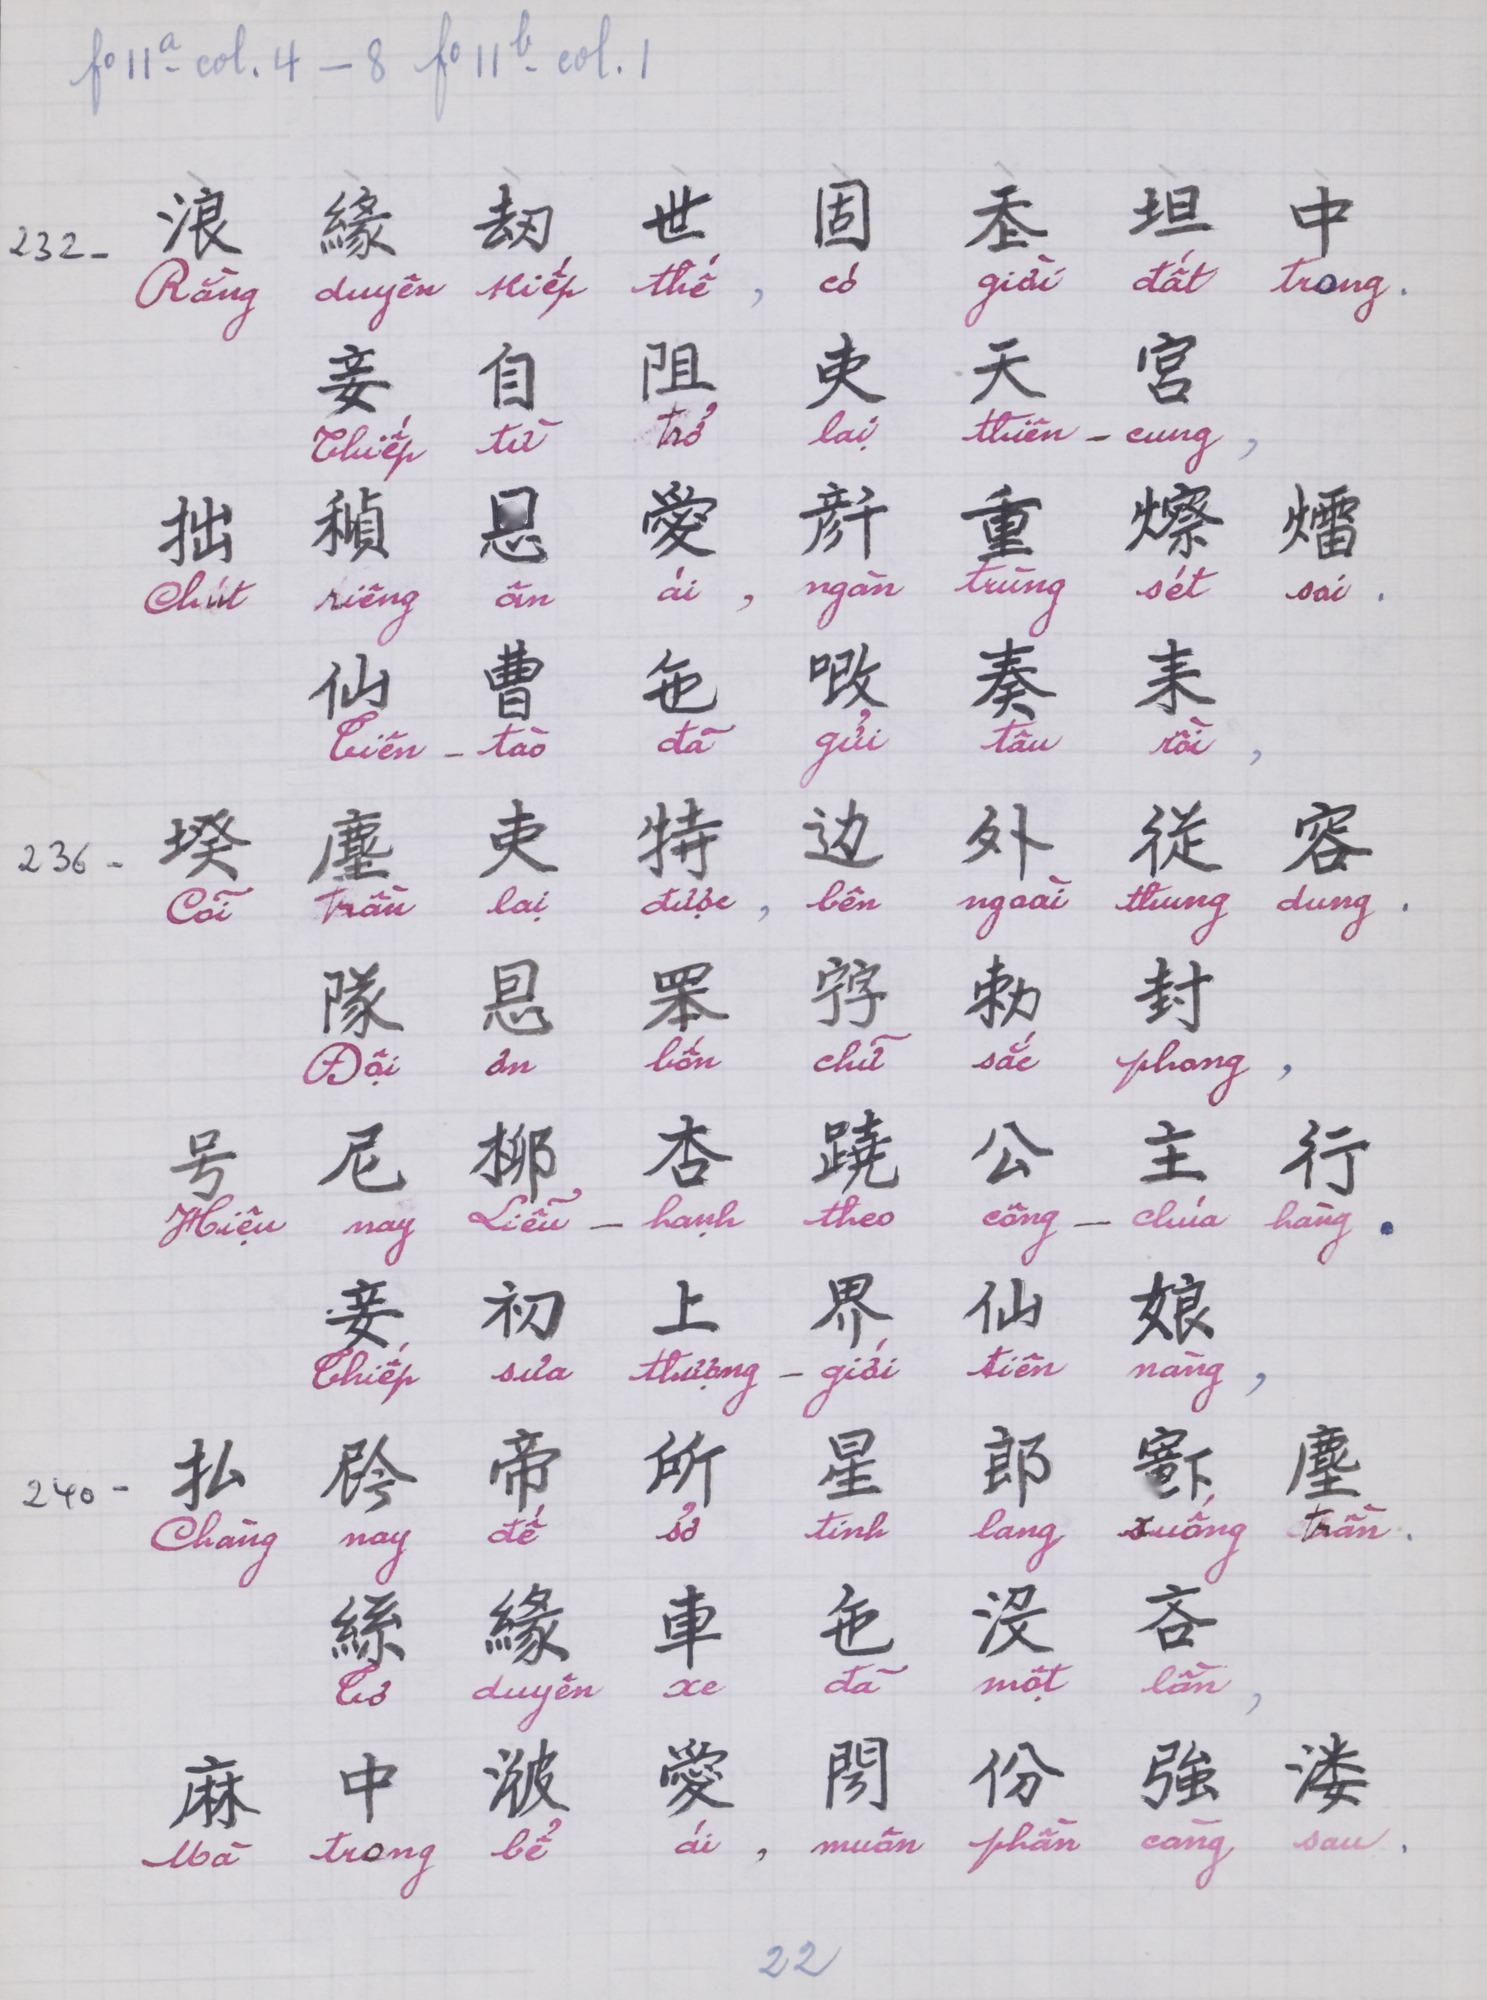 fº 11ª- col. 4 – 8 fº 11ᵇ- col. 1
232- 浪 緣 刼 世 固 坖 坦 中
Rằng duyên kiếp thế, có giời đất trong.
妾 自 阻 吏 天 宮
Thiếp từ trở lại thiên-cung,
拙 𥠭 恩 愛 𠦳 重 𤐝 𤑟
Chút riêng ân ái, ngàn trùng sét soi.
仙 曹 㐌 𠳚 奏 耒
Tiên-tào đã gửi tâu rồi,
236- 堗 塵 吏 特 边 外 従 容
Cõi trần lại được, bên ngoài thung dung.
隊 恩 𦊚 𡨸 勅 封
Đội ơn bốn chữ sắc phong,
号 尼 柳 杏 蹺 公 主 行
Hiệu nay Liễu-hạnh theo công-chúa hàng.
妾 初 上 界 仙 娘
Thiếp xưa thượng-giới tiên nàng,
240- 払 𫢩 帝 所 星 郎 𫴋 塵
Chàng nay đế sở tinh lang xuống trần.
絲 緣 車 㐌 没 吝
Tơ duyên xe đã một lần,
麻 中 𣷷 愛 閍 份 強 溇
Mà trong bể ái, muôn phần càng sau.
22